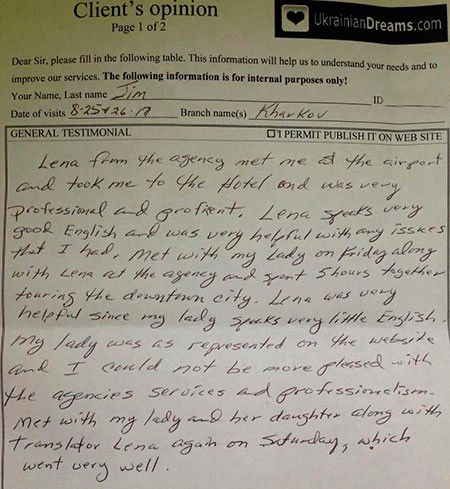 Client's opinion
Page 1 of 2
UkrainianDreams.com
Dear Sir, please fill in the following table. This information will help us to understand your needs and to
improve our services. The following information is for internal purposes only!
Your Name, Last name Jim ID
Date of visits 8-25+26-17 Branch name(s) Kharkov
GENERAL TESTIMONIAL ☐ I PERMIT PUBLISH IT ON WEB SITE
Lena from the agency met me at the airport
and took me to the Hotel and was very
professional and profient. Lena speaks very
good English and was very helpful with any issues
that I had. Met with my Lady on Friday along
with Lena at the agency and spent 5 hours together
touring the downtown city. Lena was very
helpful since my lady speaks very little English.
My lady was as represented on the website
and I could not be more pleased with
the agencies services and professionalism.
Met with my lady and her daughter along with
Translator Lena again on Saturday, which
went very well.